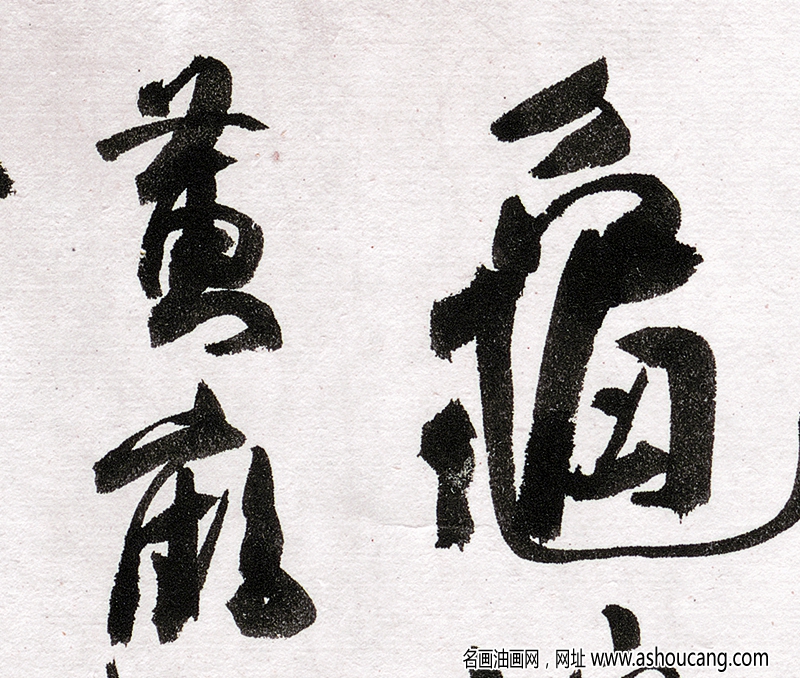 龜
黄
名画油画网，网址 www.ashoucang.com